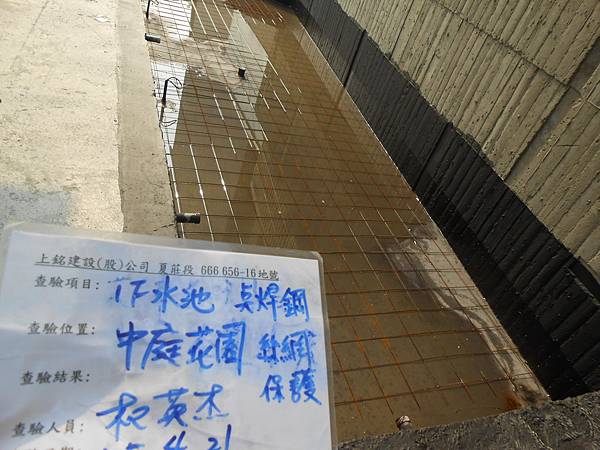 上銘建設(股)公司 夏莊段 666 656-16地號
查驗項目: 作水池 点焊鋼
查驗位置: 中庭花園 絲網
查驗結果: 保護
查驗人員: 英杰